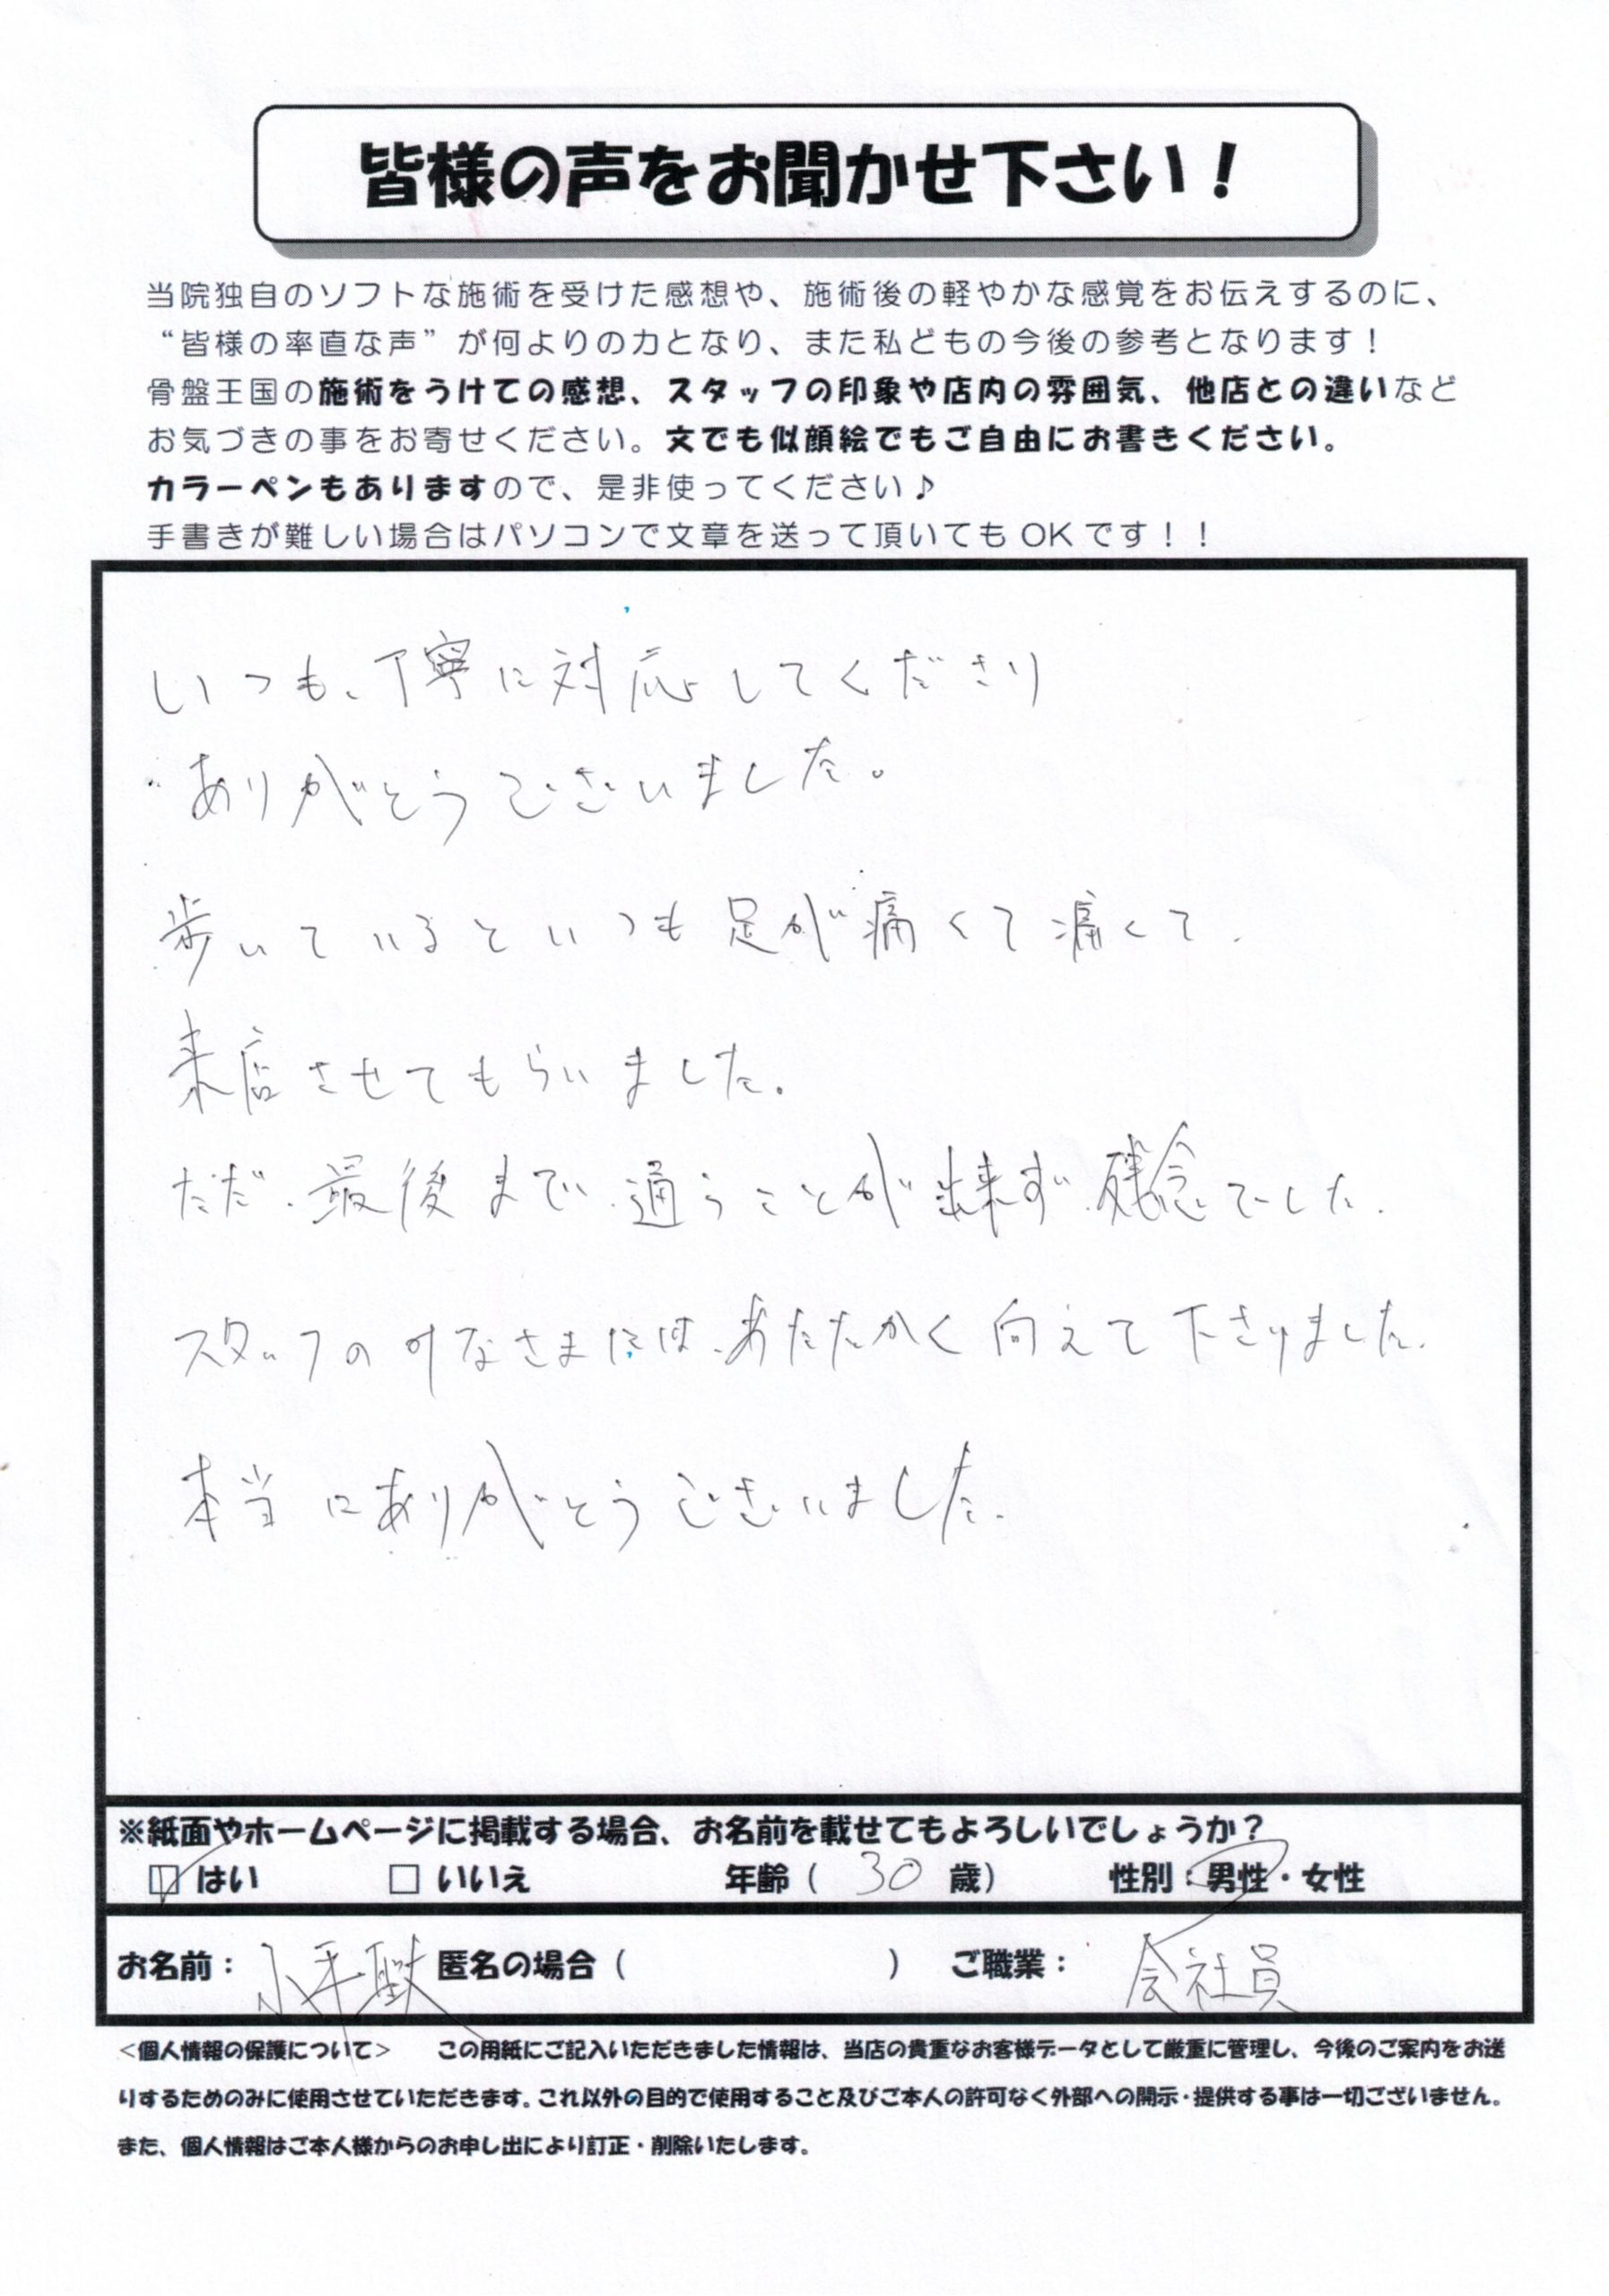 皆様の声をお聞かせ下さい!
当院独自のソフトな施術を受けた感想や、施術後の軽やかな感覚をお伝えするのに、
“皆様の率直な声”が何よりの力となり、また私どもの今後の参考となります!
骨盤王国の施術をうけての感想、スタッフの印象や店内の雰囲気、他店との違いなど
お気づきの事をお寄せください。文でも似顔絵でもご自由にお書きください。
カラーペンもありますので、是非使ってください♪
手書きが難しい場合はパソコンで文章を送って頂いてもOKです!!
いつも、丁寧に対応してくださり
ありがとうございました。
歩いているといつも足が痛くて痛くて、
来店させてもらいました。
ただ、最後まで、通うことが出来ず、残念でした。
スタッフのみなさまには、あたたかく向えて下さりました。
本当にありがとうございました。
※紙面やホームページに掲載する場合、お名前を載せてもよろしいでしょうか?
はい □ いいえ 年齢( 30 歳) 性別:男性・女性
お名前: 匿名の場合( ) ご職業: 会社員
<個人情報の保護について> この用紙にご記入いただきました情報は、当店の貴重なお客様データとして厳重に管理し、今後のご案内をお送
りするためのみに使用させていただきます。これ以外の目的で使用すること及びご本人の許可なく外部への開示・提供する事は一切ございません。
また、個人情報はご本人様からのお申し出により訂正・削除いたします。